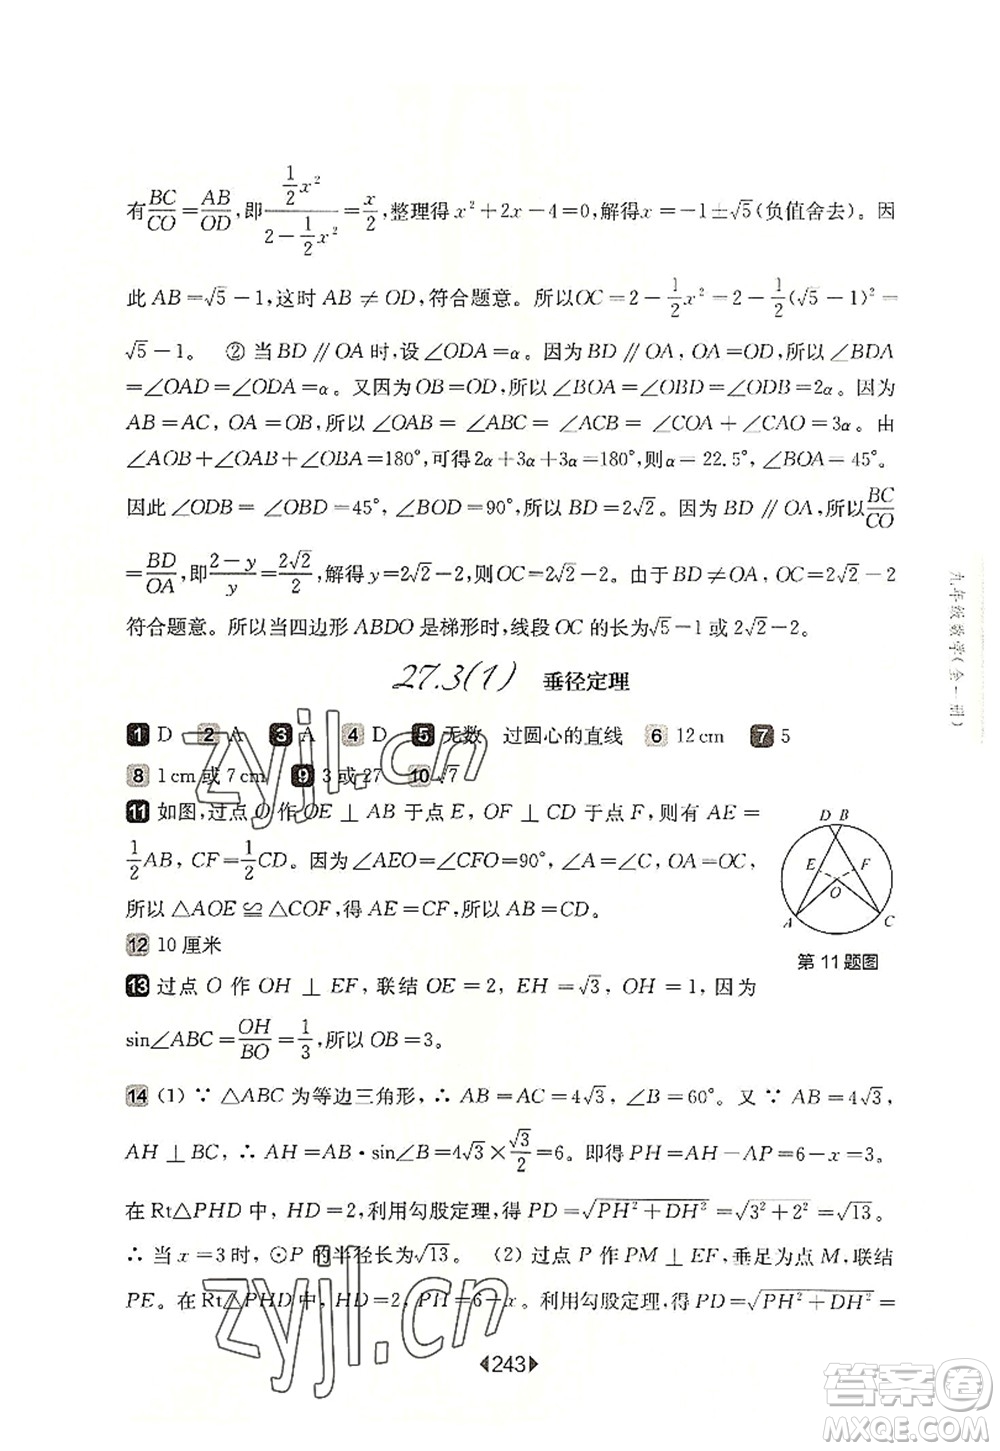 有BC/CO=AB/OD,即(1/2x²)/(2－1/2x²)=x/2,整理得x²+2x－4=0,解得x=－1±√5(负值舍去)。因
此AB=√5－1,这时AB≠OD,符合题意。所以OC=2－1/2x²=2－1/2(√5－1)²=
√5－1。 ②当BD∥OA时,设∠ODA=α。因为BD∥OA,OA=OD,所以∠BDA
=∠OAD=∠ODA=α。又因为OB=OD,所以∠BOA=∠OBD=∠ODB=2α。因为
AB=AC,OA=OB,所以∠OAB=∠ABC=∠ACB=∠COA+∠CAO=3α。由
∠AOB+∠OAB+∠OBA=180°,可得2α+3α+3α=180°,则α=22.5°,∠BOA=45°。
因此∠ODB=∠OBD=45°,∠BOD=90°,所以BD=2√2。因为BD∥OA,所以BC/CO
=BD/OA,即(2－y)/y=2√2/2,解得y=2√2－2,则OC=2√2－2。由于BD≠OA,OC=2√2－2
符合题意。所以当四边形ABDO是梯形时,线段OC的长为√5－1或2√2－2。
27.3(1) 垂径定理
1 D 2 A 3 A 4 D 5 无数 过圆心的直线 6 12 cm 7 5
8 1 cm或7 cm 9 3或27 10 √7
11 如图,过点O作OE⊥AB于点E,OF⊥CD于点F,则有AE=
1/2AB,CF=1/2CD。因为∠AEO=∠CFO=90°,∠A=∠C,OA=OC,
所以△AOE≌△COF,得AE=CF,所以AB=CD。
D B
E F
O
A C
第11题图
12 10厘米
13 过点O作OH⊥EF,联结OE=2,EH=√3,OH=1,因为
sin∠ABC=OH/BO=1/3,所以OB=3。
14 (1)∵△ABC为等边三角形,∴AB=AC=4√3,∠B=60°。又∵AB=4√3,
AH⊥BC,∴AH=AB·sin∠B=4√3×√3/2=6。即PH=AH－AP=6－x=3。
在Rt△PHD中,HD=2,利用勾股定理,得PD=√(PH²+DH²)=√(3²+2²)=√13。
∴当x=3时,⊙P的半径长为√13。 (2)过点P作PM⊥EF,垂足为点M,联结
PE。在Rt△PHD中,HD=2,PH=6－x。利用勾股定理,得PD=√(PH²+DH²)=
243
九年级数学(全一册)
zyjl.cn
zyjl.cn
答案圈
MXQE.COM